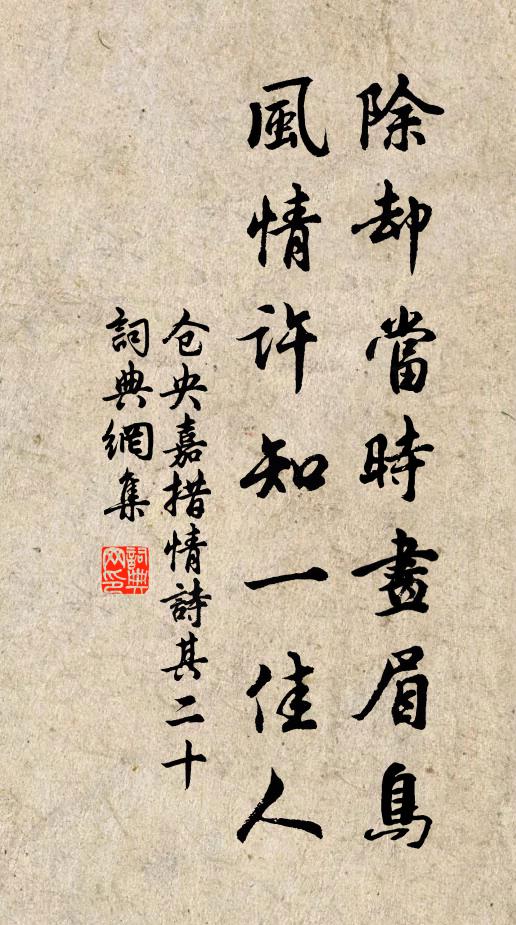 除却當時畫眉鳥
風情許知一佳人
仓央嘉措情詩其二十
詞典網集
詞典
网印